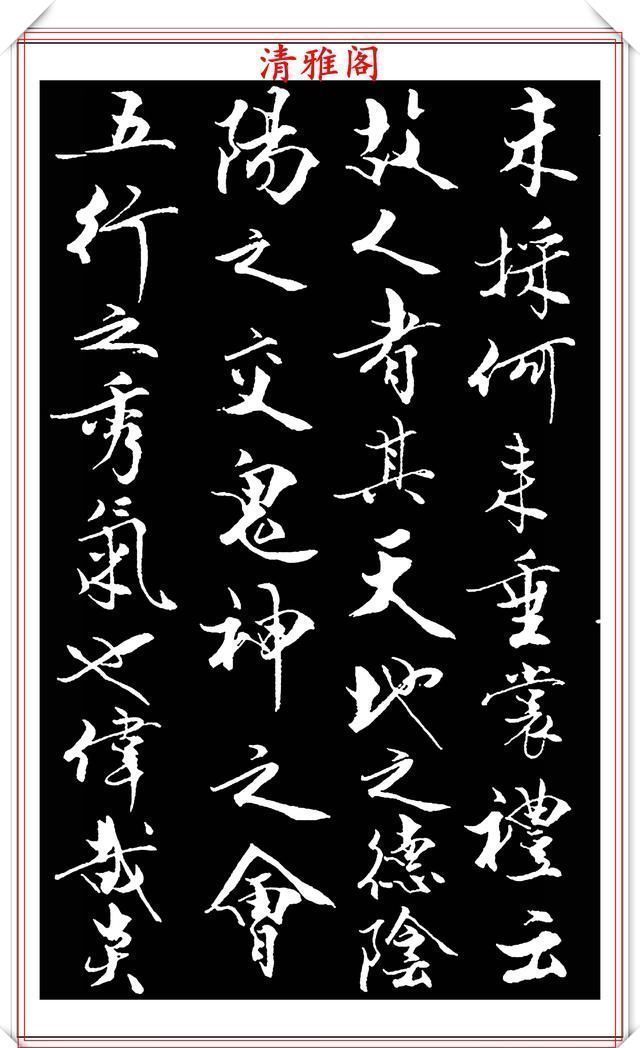 清雅阁
未採何来垂裳禮云
故人者其天地之德陰
陽之交鬼神之會
五行之秀氣也偉哉炎